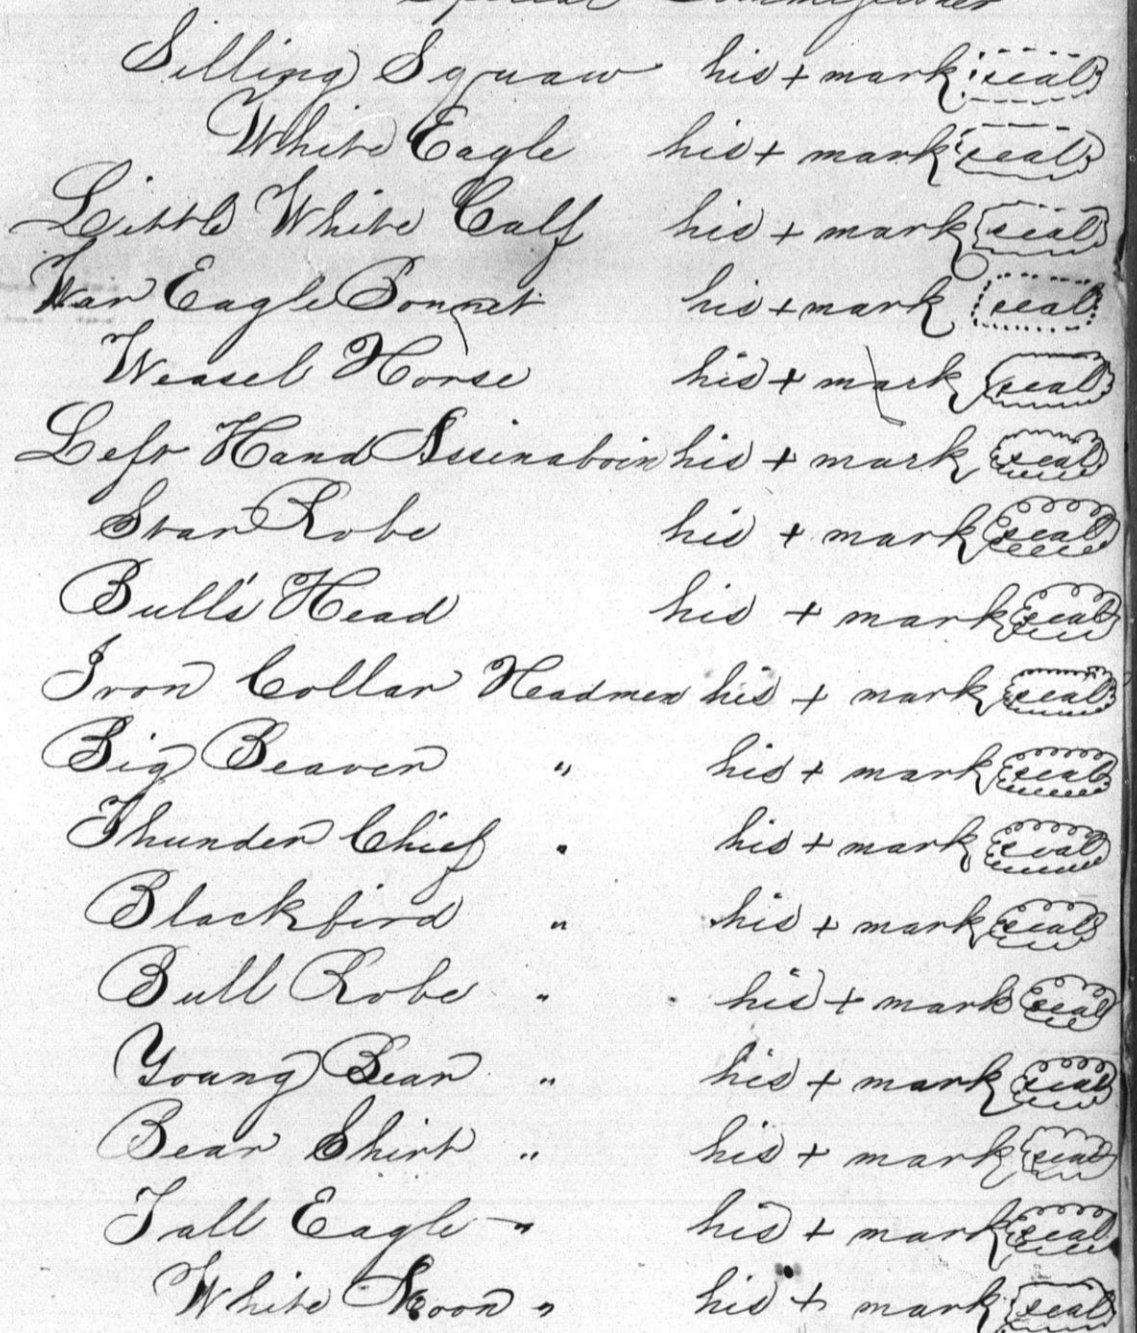 Special Commissioner
Sitting Squaw his + mark seal
White Eagle his + mark seal
Little White Calf his + mark seal
War Eagle Bonnet his + mark seal
Weasel Horse his + mark seal
Left Hand Assinaboin his + mark seal
Star Robe his + mark seal
Bull's Head his + mark seal
Iron Collar Headmen his + mark seal
Big Beaver " his + mark seal
Thunder Chief " his + mark seal
Blackbird " his + mark seal
Bull Robe " his + mark seal
Young Bear " his + mark seal
Bear Shirt " his + mark seal
Tall Eagle " his + mark seal
White " his + mark seal